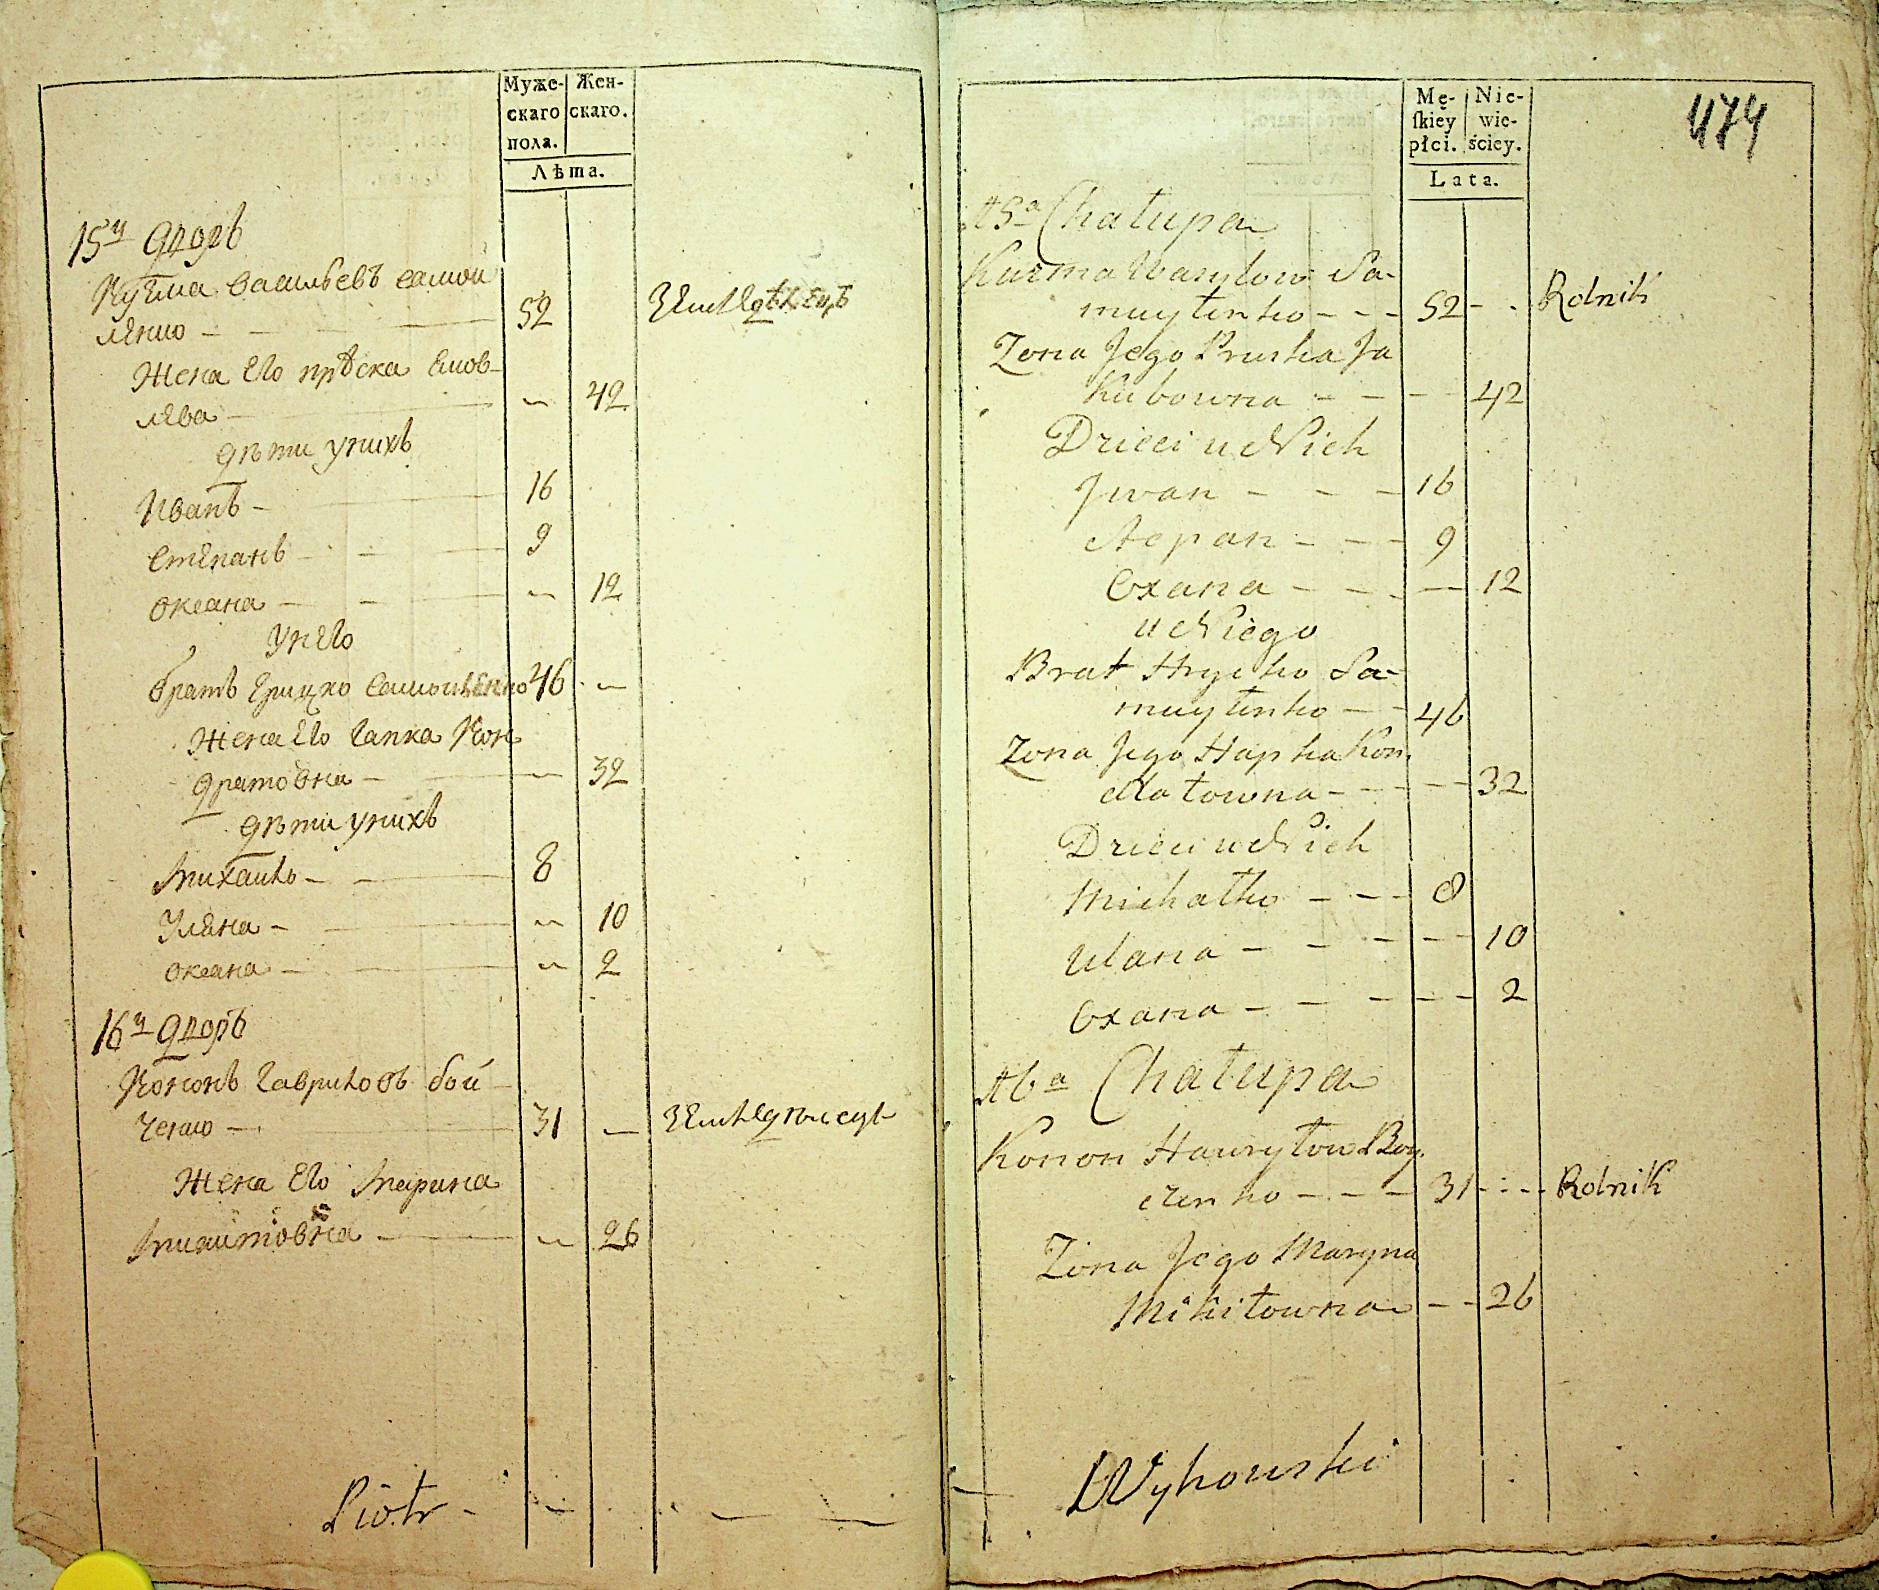 Муже-
скаго
пола.
Жен-
скаго.
Лѣта.
15й дворъ
Кузма васильевъ самой
ленко
52
земледѣлецъ
Жена его прѣска Яков-
лева
42
дѣти унихъ
Иванъ
16
степанъ
9
оксана
12
унего
братъ грицко самойленко 46
Жена его гапка Кон
дратовна
32
дѣти унихъ
михаило
8
Уляна
10
оксана
2
16й дворъ
Кононъ гавриловъ бой
ченко
31
земледѣлецъ
Жена его марина
микитовна
26
Piotr
474
Mę-
ſkiey
płci.
Nie-
wie-
ściey.
Lata.
15a Chałupa
Kuzma Wasylow Sa-
muyłenko
52
Rolnik
Zona Jego Pruska Ja
kubowna
42
Dzieci u Nich
Jwan
16
Scpan
9
Oxana
12
u Niego
Brat Hrycko Sa-
muyłenko
46
Zona Jego Hapka Kon.
dratowna
32
Dzieci u Nich
Michałko
8
Ulana
10
Oxana
2
16a Chałupa
Konon Hawryłow Boy.
czenko
31
Rolnik
Zona Jego Maryna
Mikitowna
26
Wyhowski